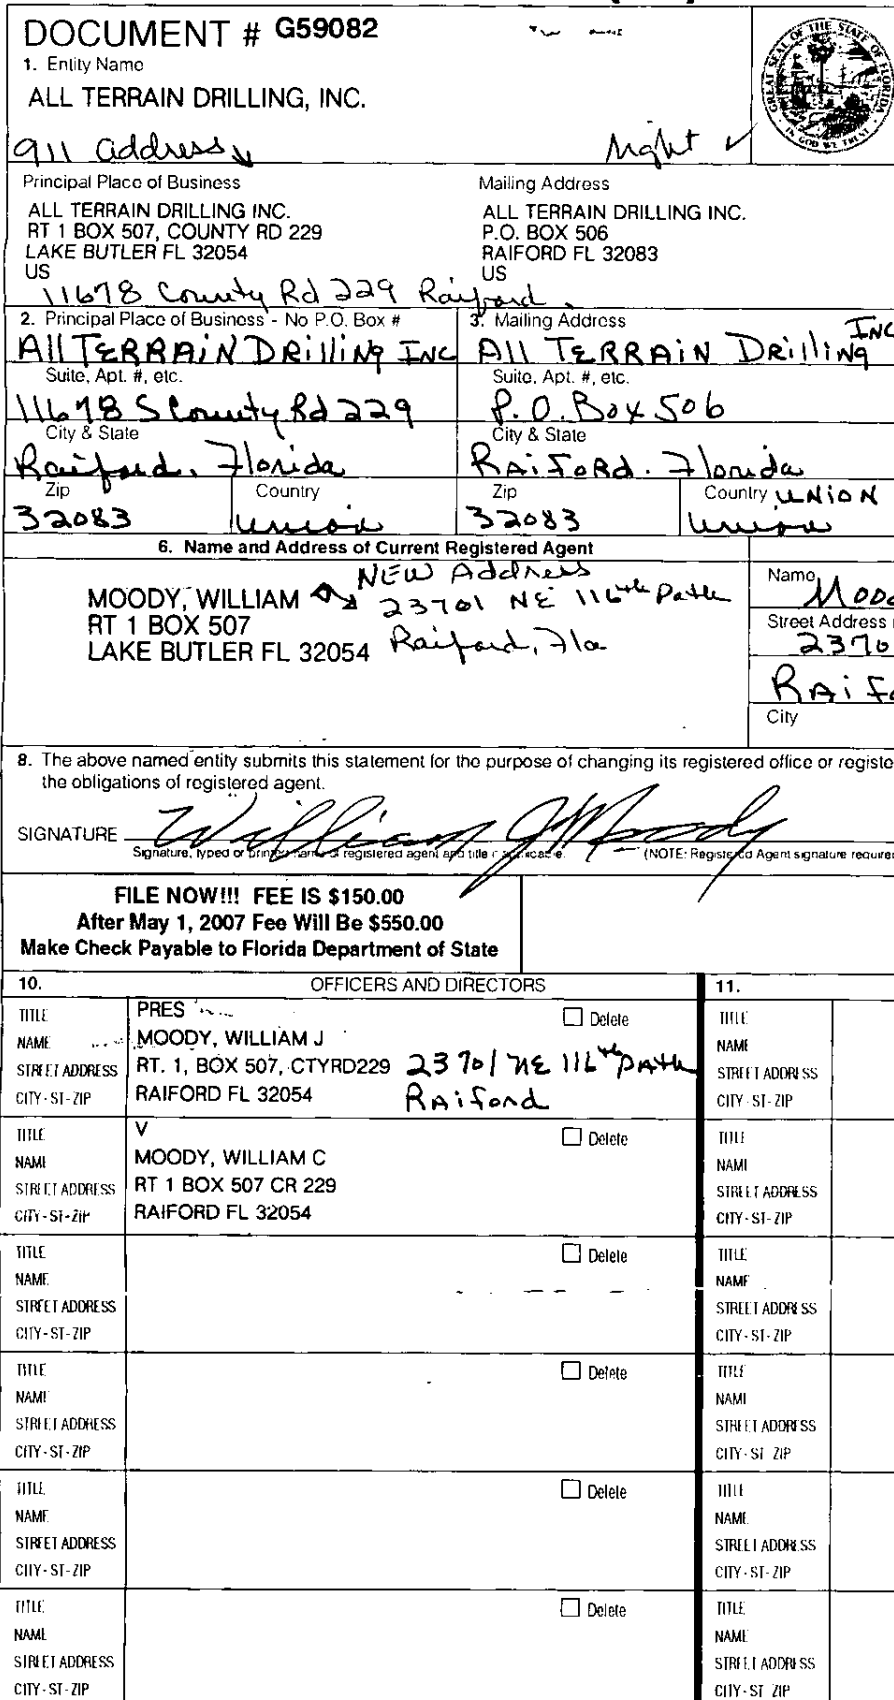 DOCUMENT # G59082
1. Entity Name
ALL TERRAIN DRILLING, INC.
GREAT SEAL OF THE STATE OF FLORIDA
IN GOD WE TRUST
911 address
Right ✓
Principal Place of Business
Mailing Address
ALL TERRAIN DRILLING INC.
RT 1 BOX 507, COUNTY RD 229
LAKE BUTLER FL 32054
US
ALL TERRAIN DRILLING INC.
P.O. BOX 506
RAIFORD FL 32083
US
11678 County Rd 229 Raiford
2. Principal Place of Business - No P.O. Box #
All TERRAIN Drilling INC
Suite, Apt. #, etc.
11678 S County Rd 229
City & State
Raiford, Florida
Zip
Country
32083
Union
3. Mailing Address
All TERRAIN Drilling INC
Suite, Apt. #, etc.
P.O. Box 506
City & State
RAIFORD. Florida
Zip
Country UNION
32083
Union
6. Name and Address of Current Registered Agent
MOODY, WILLIAM
RT 1 BOX 507
LAKE BUTLER FL 32054
NEW Address
23701 NE 116th Path
Raiford, Fla
Name
Mood
Street Address
2370
RAIFO
City
8. The above named entity submits this statement for the purpose of changing its registered office or registe
the obligations of registered agent.
SIGNATURE William J Moody
Signature, typed or printed name of registered agent and title if applicable.
(NOTE: Registered Agent signature require
FILE NOW!!! FEE IS $150.00
After May 1, 2007 Fee Will Be $550.00
Make Check Payable to Florida Department of State
10. OFFICERS AND DIRECTORS
11.
TITLE PRES Delete
NAME MOODY, WILLIAM J
STREET ADDRESS RT. 1, BOX 507, CTYRD229 23701 NE 116th Path
CITY-ST-ZIP RAIFORD FL 32054 RAiford
TITLE
NAME
STREET ADDRESS
CITY-ST-ZIP
TITLE V Delete
NAME MOODY, WILLIAM C
STREET ADDRESS RT 1 BOX 507 CR 229
CITY-ST-ZIP RAIFORD FL 32054
TITLE
NAME
STREET ADDRESS
CITY-ST-ZIP
TITLE Delete
NAME
STREET ADDRESS
CITY-ST-ZIP
TITLE
NAME
STREET ADDRESS
CITY-ST-ZIP
TITLE Delete
NAME
STREET ADDRESS
CITY-ST-ZIP
TITLE
NAME
STREET ADDRESS
CITY-ST-ZIP
TITLE Delete
NAME
STREET ADDRESS
CITY-ST-ZIP
TITLE
NAME
STREET ADDRESS
CITY-ST-ZIP
TITLE Delete
NAME
STREET ADDRESS
CITY-ST-ZIP
TITLE
NAME
STREET ADDRESS
CITY-ST-ZIP